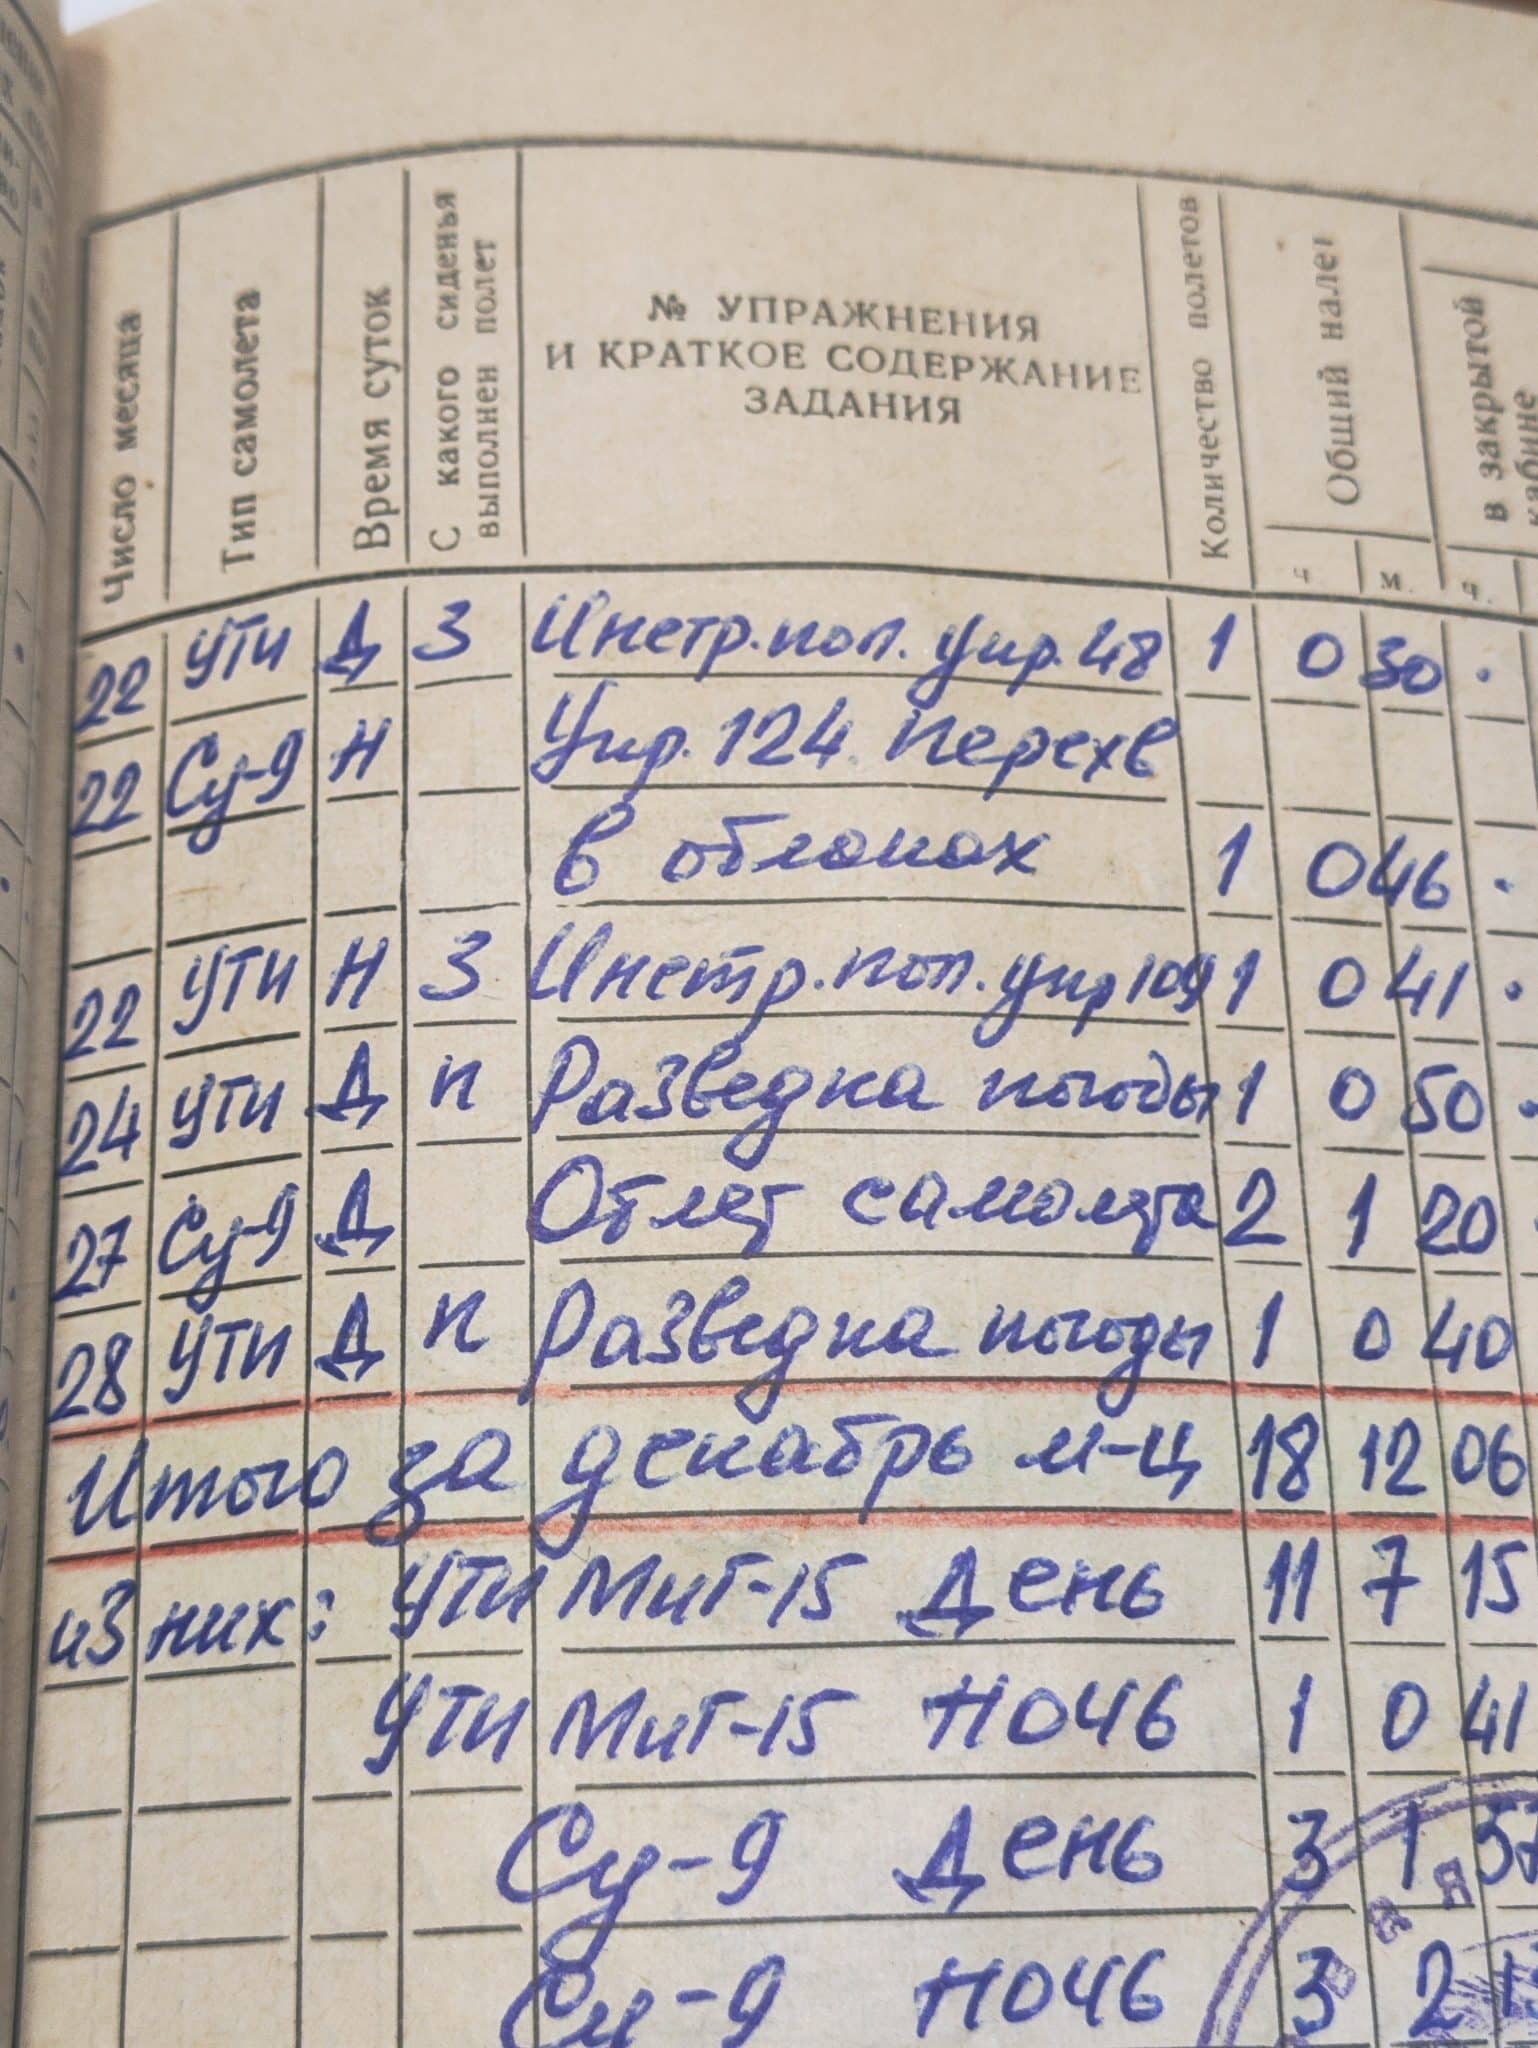 Число месяца
Тип самолета
Время суток
С какого сиденья
выполнен полет
№ УПРАЖНЕНИЯ
И КРАТКОЕ СОДЕРЖАНИЕ
ЗАДАНИЯ
Количество полетов
Общий налет
в закрытой
кабине
ч. м. ч.
22 УТИ Д З Инстр.пол. упр.48 1 0 30
22 Су-9 Н Упр.124. Перехв
в облаках 1 0 46
22 УТИ Н З Инстр.пол.упр 109 1 0 41
24 УТИ Д П Разведка погоды 1 0 50
27 Су-9 Д Облет самолета 2 1 20
28 УТИ Д П Разведка погоды 1 0 40
Итого за декабрь м-ц 18 12 06
из них: УТИ МиГ-15 День 11 7 15
УТИ МиГ-15 Ночь 1 0 41
Су-9 День 3 1 57
Су-9 Ночь 3 2